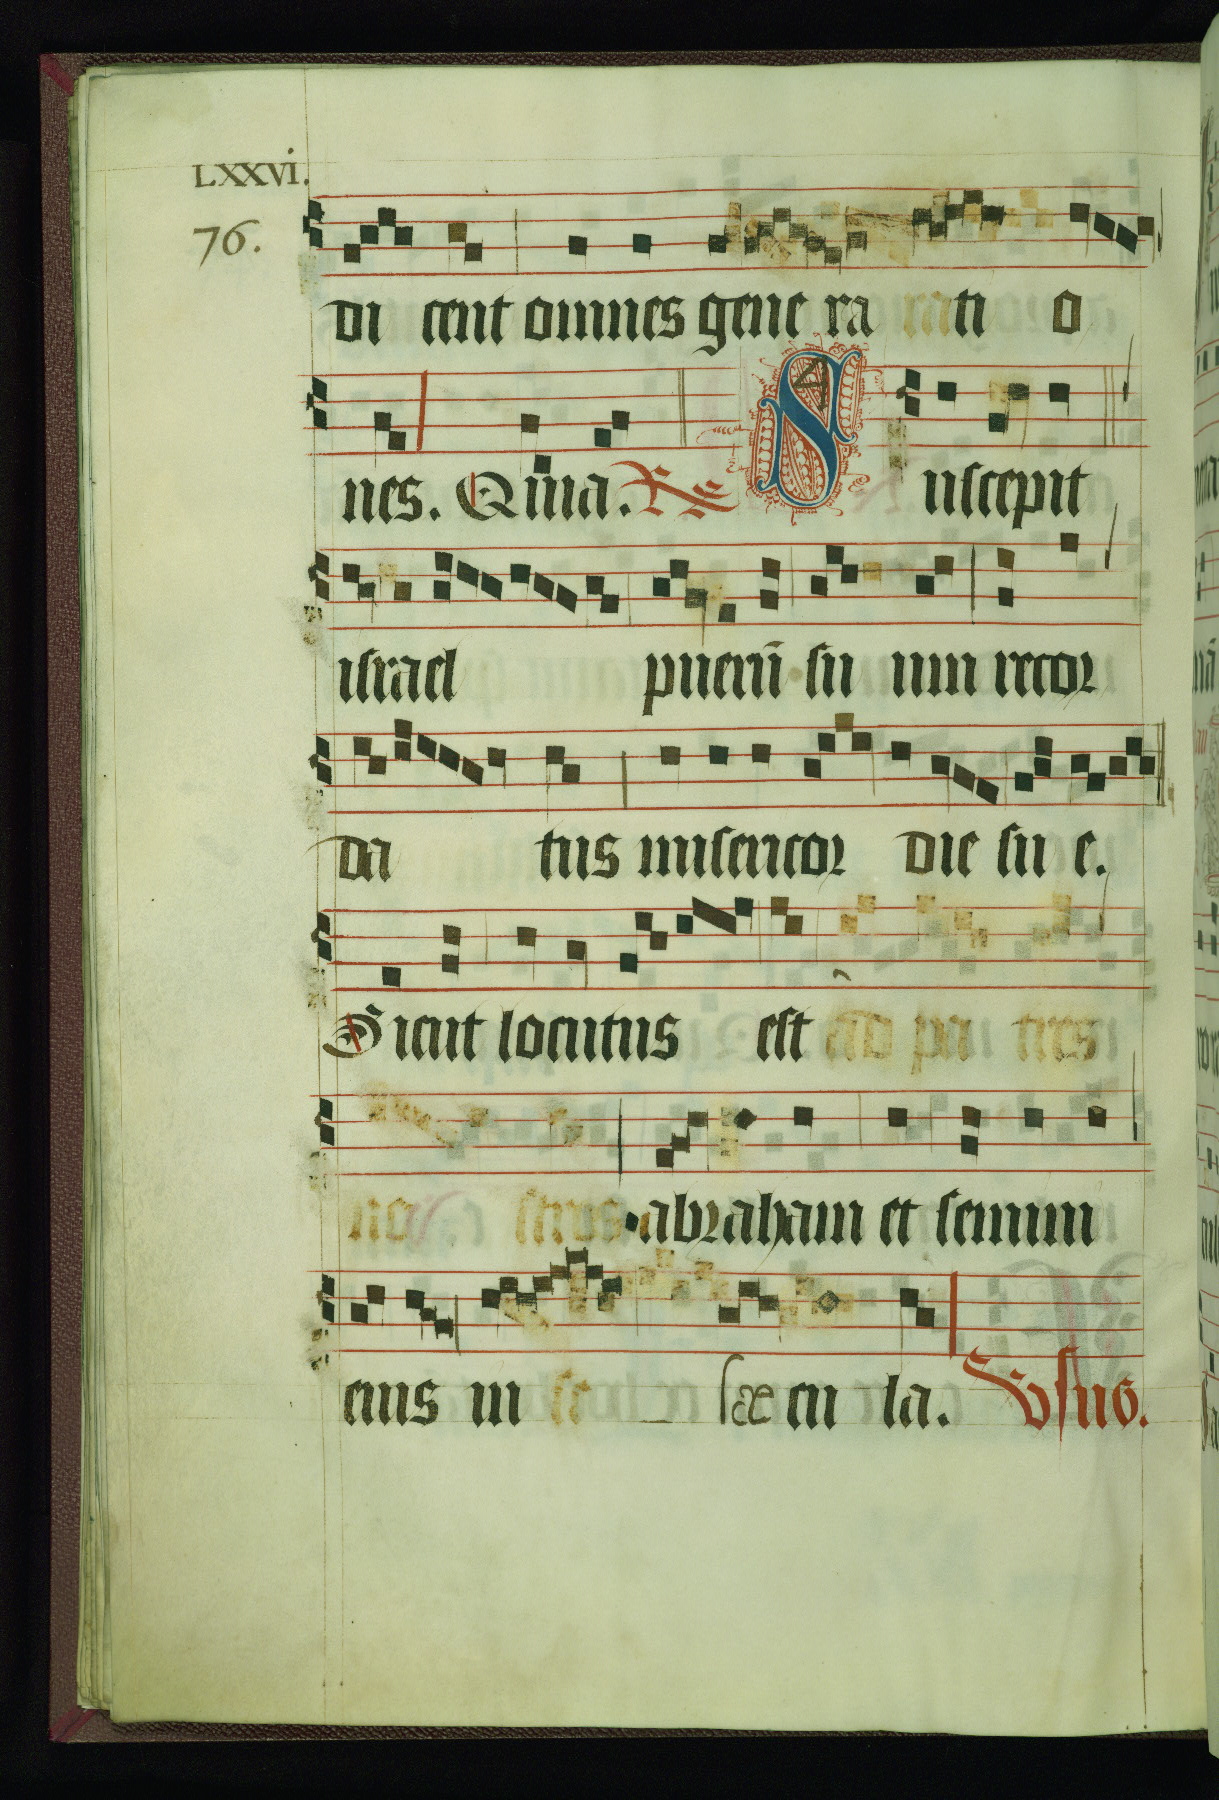 LXXVI.
76.
di cent omnes gene ra rati o
nes. Quia. R Suscepit
israel puerū su um recor
da tus misericor die su e.
Sicut locutus est ad pa tres
no stros abraham et semini
eius in se sae cu la. Vsus.